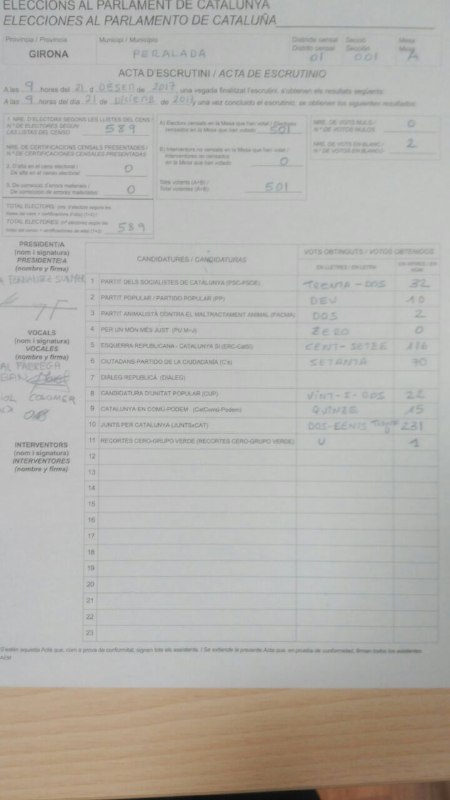 ELECCIONS AL PARLAMENT DE CATALUNYA
ELECCIONES AL PARLAMENTO DE CATALUÑA
Província / Provincia Municipi / Municipio Districte censal Secció Mesa
Distrito censal Sección Mesa
GIRONA PERALADA 01 001 A
ACTA D'ESCRUTINI / ACTA DE ESCRUTINIO
A les 9 hores del 21 d de 2017, una vegada finalitzat l'escrutini, s'obtenen els resultats següents:
A las 9 horas del día 21 de de 2017, una vez concluido el escrutinio, se obtienen los siguientes resultados:
1. NRE. D'ELECTORS SEGONS LES LLISTES DEL CENS
Nº DE ELECTORES SEGÚN LAS LISTAS DEL CENSO 589
NRE. DE CERTIFICACIONS CENSALS PRESENTADES /
Nº DE CERTIFICACIONES CENSALES PRESENTADAS
2. D'alta en el cens electoral /
De alta en el censo electoral 0
3. De correcció d'errors materials /
De corrección de errores materiales 0
TOTAL ELECTORS
TOTAL ELECTORES 589
A) Electors censats en la Mesa que han votat / Electores
censados en la Mesa que han votado 501
B) Interventors no censats en la Mesa que han votat /
Interventores no censados
en la Mesa que han votado 0
Total votants (A+B) /
Total votantes (A+B) 501
NRE. DE VOTS NULS
Nº DE VOTOS NULOS 0
NRE. DE VOTS EN BLANC
Nº DE VOTOS EN BLANCO 2
PRESIDENT/A
(nom i signatura)
PRESIDENTE/A
(nombre y firma)
VOCALS
(nom i signatura)
VOCALES
(nombre y firma)
FABREGA
COLOMER
INTERVENTORS
(nom i signatura)
INTERVENTORES
(nombre y firma)
CANDIDATURES / CANDIDATURAS VOTS OBTINGUTS / VOTOS OBTENIDOS
EN LLETRES / EN LETRA
1 PARTIT DELS SOCIALISTES DE CATALUNYA (PSC-PSOE) TRENTA-DOS 32
2 PARTIT POPULAR / PARTIDO POPULAR (PP) DEU 10
3 PARTIT ANIMALISTA CONTRA EL MALTRACTAMENT ANIMAL (PACMA) DOS 2
4 PER UN MÓN MÉS JUST (PUM+J) ZERO 0
5 ESQUERRA REPUBLICANA - CATALUNYA SÍ (ERC-CatSí) CENT-SETZE 116
6 CIUTADANS-PARTIDO DE LA CIUDADANÍA (C's) SETANTA 70
7 DIÀLEG REPUBLICÀ (DIÀLEG)
8 CANDIDATURA D'UNITAT POPULAR (CUP) VINT-I-DOS 22
9 CATALUNYA EN COMÚ-PODEM (CatComú-Podem) QUINZE 15
10 JUNTS PER CATALUNYA (JUNTSxCAT) DOS-CENTS 231
11 RECORTES CERO-GRUPO VERDE (RECORTES CERO-GRUPO VERDE) U 1
12
13
14
15
16
17
18
19
20
21
22
23